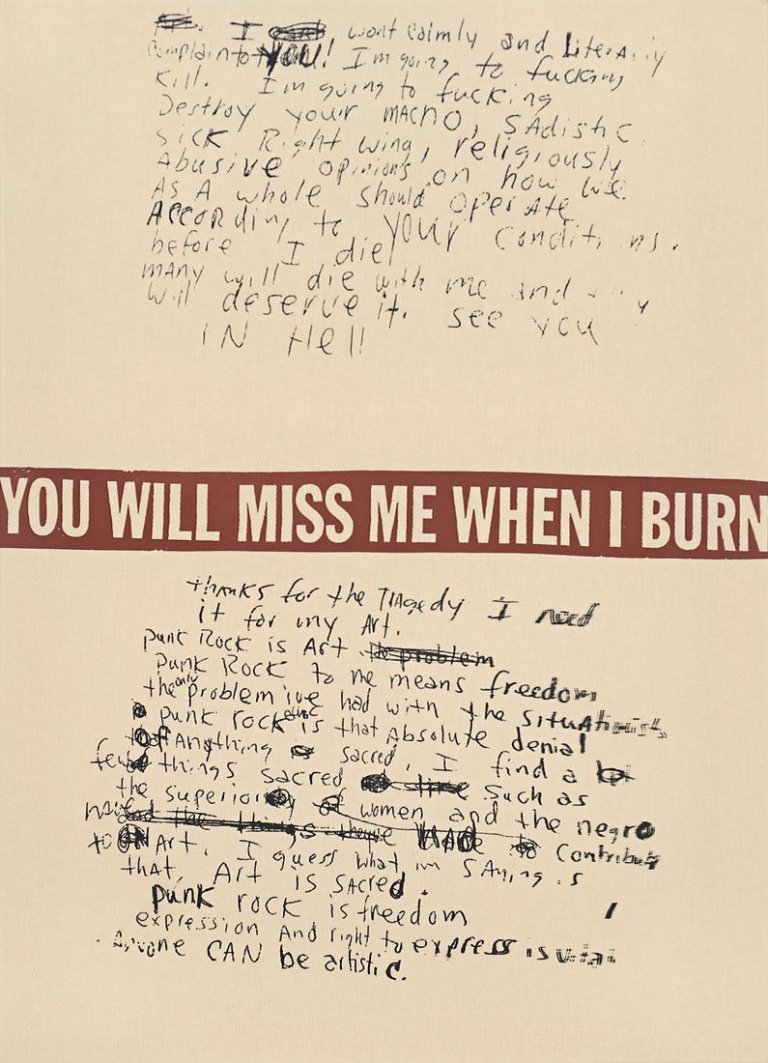 I wont calmly and Literally
complain to YOU! I'm going to fucking
Kill. I'm going to fucking
Destroy your MACHO, SAdistic
Sick Right wing, religiously
Abusive opinions on how we
AS A whole should operate
ACCORding to YOUR Conditions.
before I die
mAny will die with me and
will deserve it. See you
IN Hell
YOU WILL MISS ME WHEN I BURN
thanks for the TRAgedy I need
it for my Art.
punk Rock is Art
punk Rock to me means freedom
the only problem ive had with the situAtionists
punk rock ethic is that Absolute denial
of Anything sacred. I find a
few things sacred such as
the superiority of women and the negro
to Contribute
to Art. I guess what im SAying is
that, Art is sAcred.
punk rock is freedom
expression And right to express is vital
Anyone CAN be artistic.